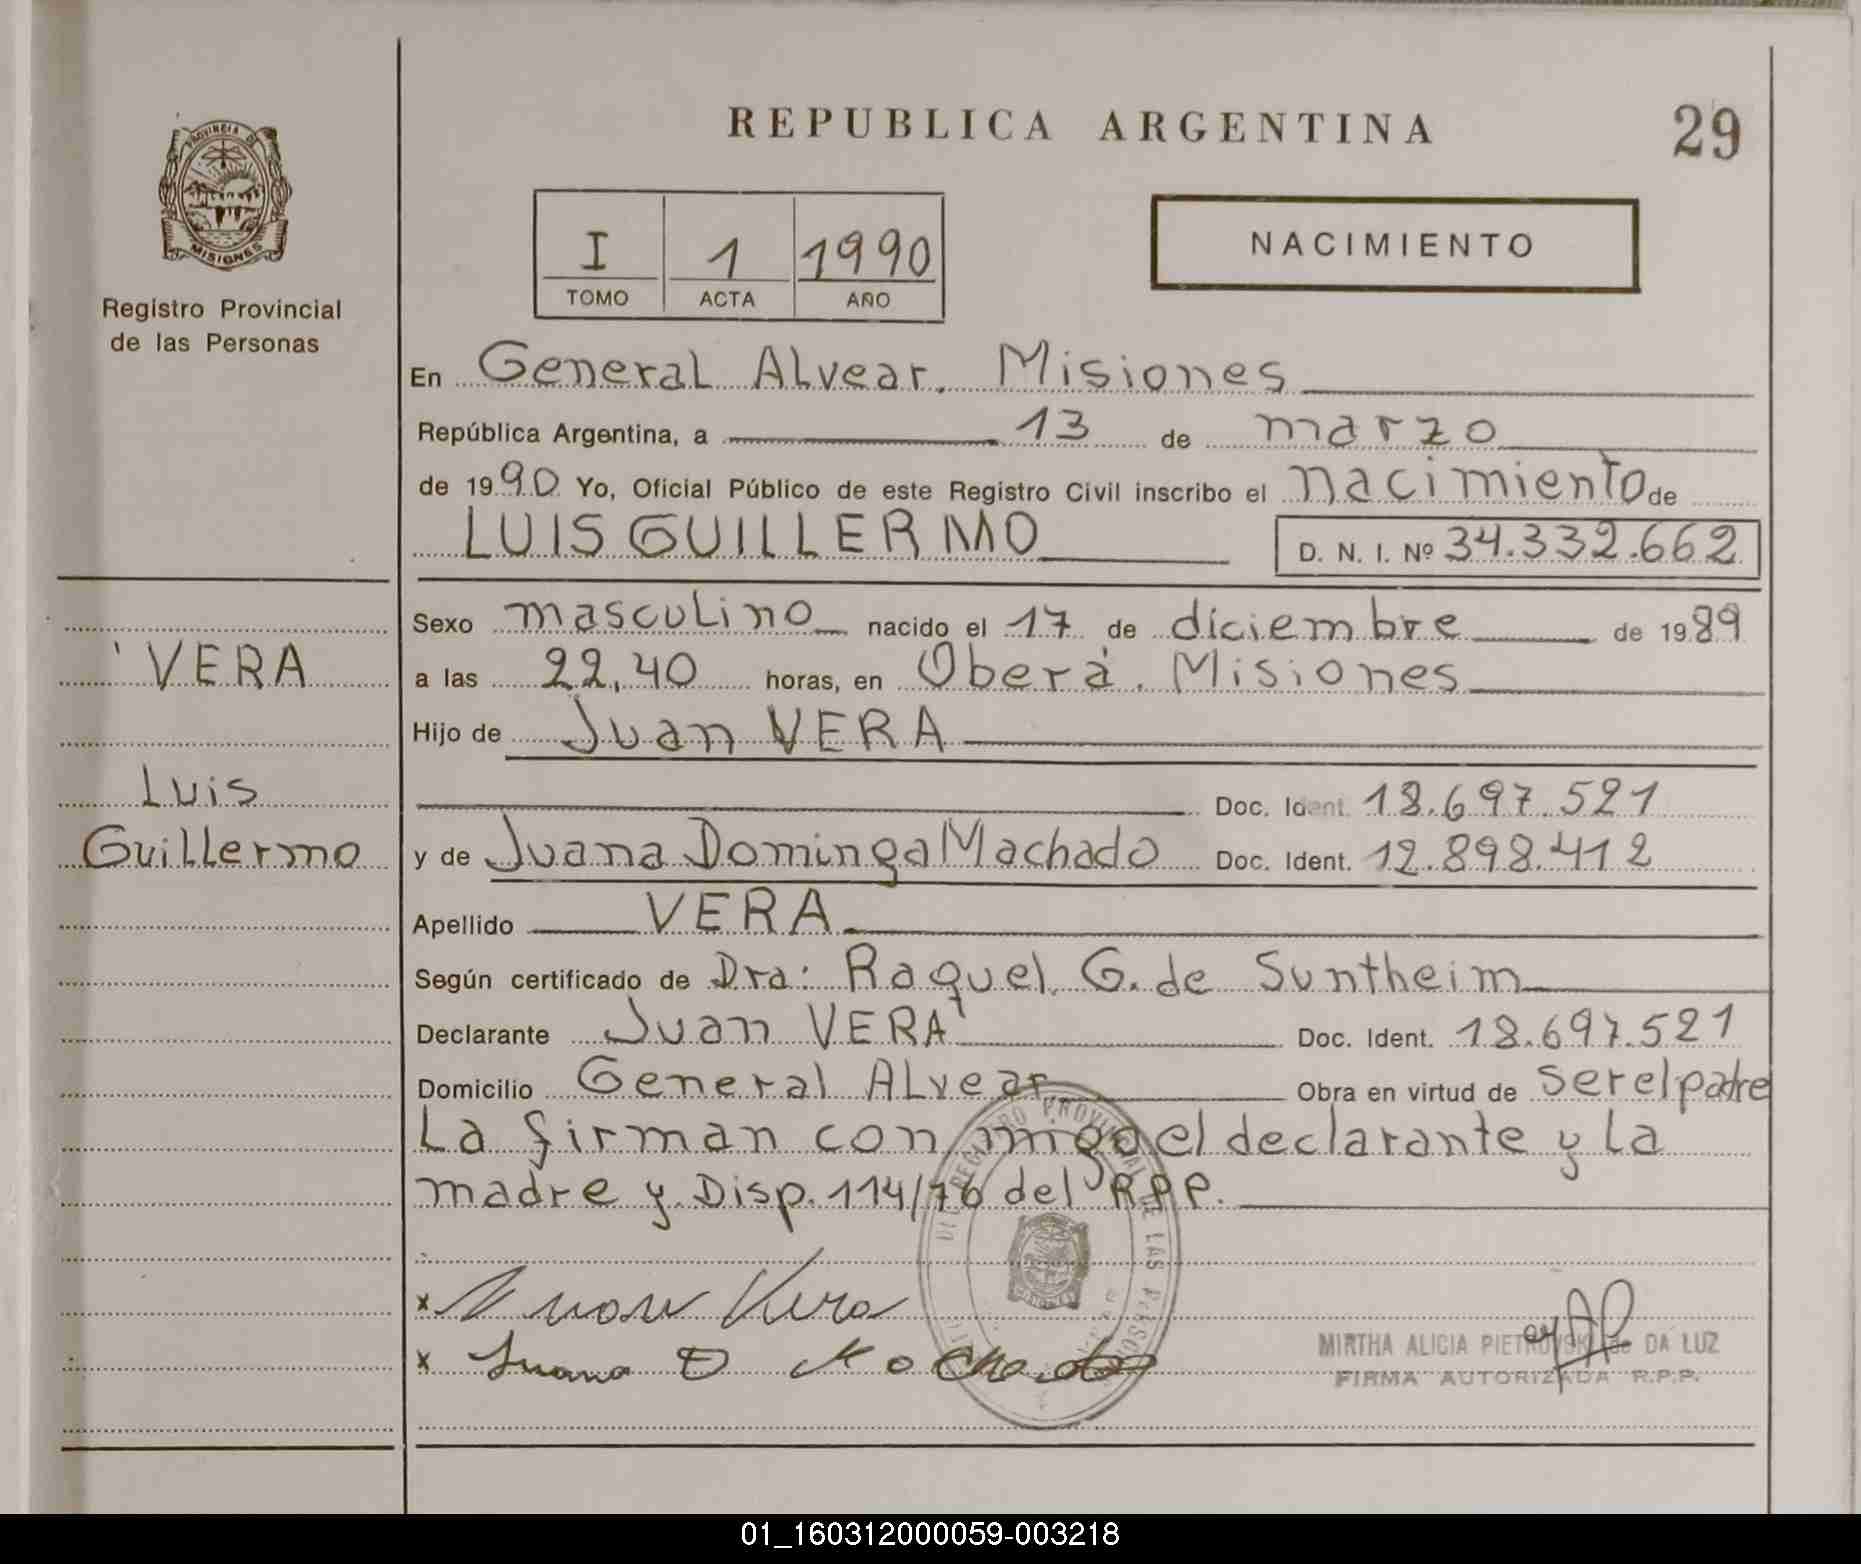 REPUBLICA ARGENTINA
29
PROVINCIA DE
MISIONES
Registro Provincial
de las Personas
I 1 1990
TOMO ACTA AÑO
NACIMIENTO
En General Alvear. Misiones
República Argentina, a 13 de marzo
de 1990 Yo, Oficial Público de este Registro Civil inscribo el nacimiento de
LUIS GUILLERMO D. N. I. Nº 34.332.662
VERA
Luis
Guillermo
Sexo masculino nacido el 17 de diciembre de 1989
a las 22,40 horas, en Oberá. Misiones
Hijo de Juan VERA
Doc. Ident. 18.697.521
y de Juana Dominga Machado Doc. Ident. 12.898.412
Apellido VERA
Según certificado de Dra: Raquel G. de Suntheim
Declarante Juan VERA Doc. Ident. 18.697.521
Domicilio General Alvear Obra en virtud de ser el padre
La firman conmigo el declarante y la
madre y Disp. 114/76 del RPP.
REGISTRO PROVINCIAL DE LAS PERSO
x Juan Vera
x Juana D Machado
MIRTHA ALICIA PIETROVSKI de DA LUZ
FIRMA AUTORIZADA R.P.P.
01_160312000059-003218